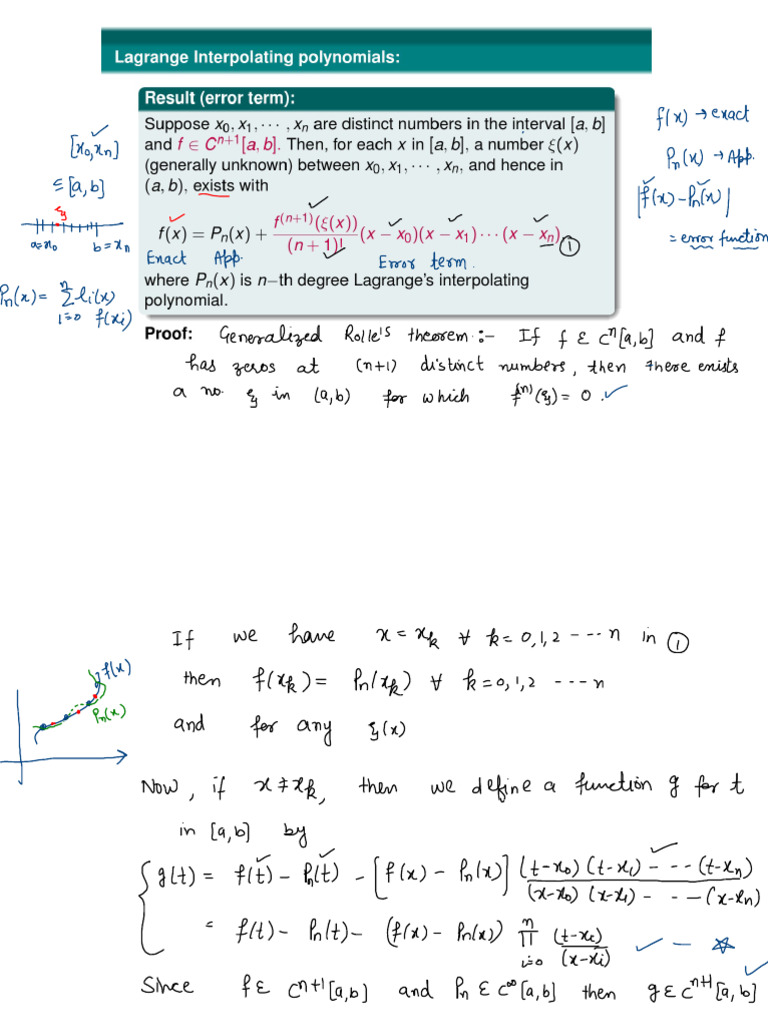 Lagrange Interpolating polynomials:
Result (error term):
Suppose x₀, x₁, ⋯ , xₙ are distinct numbers in the interval [a, b]
and f ∈ Cⁿ⁺¹[a, b]. Then, for each x in [a, b], a number ξ(x)
(generally unknown) between x₀, x₁, ⋯ , xₙ, and hence in
(a, b), exists with
f(x) = Pₙ(x) + f⁽ⁿ⁺¹⁾(ξ(x)) / (n + 1)! (x − x₀)(x − x₁) ⋯ (x − xₙ) ①
Exact App. Error term.
where Pₙ(x) is n−th degree Lagrange's interpolating
polynomial.
[x₀, xₙ]
⊆ [a, b]
ξ
a=x₀ b=xₙ
Pₙ(x) = Σⁿᵢ₌₀ lᵢ(x)
f(xᵢ)
f(x) → exact
Pₙ(x) → App.
|f(x) − Pₙ(x)|
= error function
Proof: Generalized Rolle's theorem :- If f ε Cⁿ[a,b] and f
has zeros at (n+1) distinct numbers, then there exists
a no. ξ in (a,b) for which f⁽ⁿ⁾(ξ) = 0.
If we have x = xₖ ∀ k = 0,1,2 ---- n in ①
then f(xₖ) = Pₙ(xₖ) ∀ k = 0,1,2 ---- n
and for any ξ(x)
f(x)
Pₙ(x)
Now, if x ≠ xₖ, then we define a function g for t
in [a,b] by
g(t) = f(t) − Pₙ(t) − [f(x) − Pₙ(x)] (t-x₀) (t-x₁) - -- (t-xₙ) / (x-x₀) (x-x₁) - - -- (x-xₙ)
= f(t) − Pₙ(t) − (f(x) − Pₙ(x)) ∏ⁿᵢ₌₀ (t-xᵢ) / (x-xᵢ) — ☆
Since f ε Cⁿ⁺¹[a,b] and Pₙ ε C^∞[a,b] then g ε Cⁿ⁺¹[a,b]